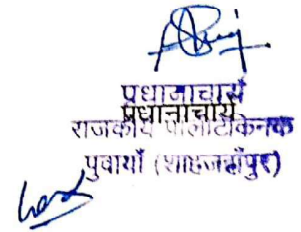 प्रधानाचार्य
प्रधानाचार्य
राजकीय पालीटेकिनक
पुवायाँ (शाहजहाँपुर)